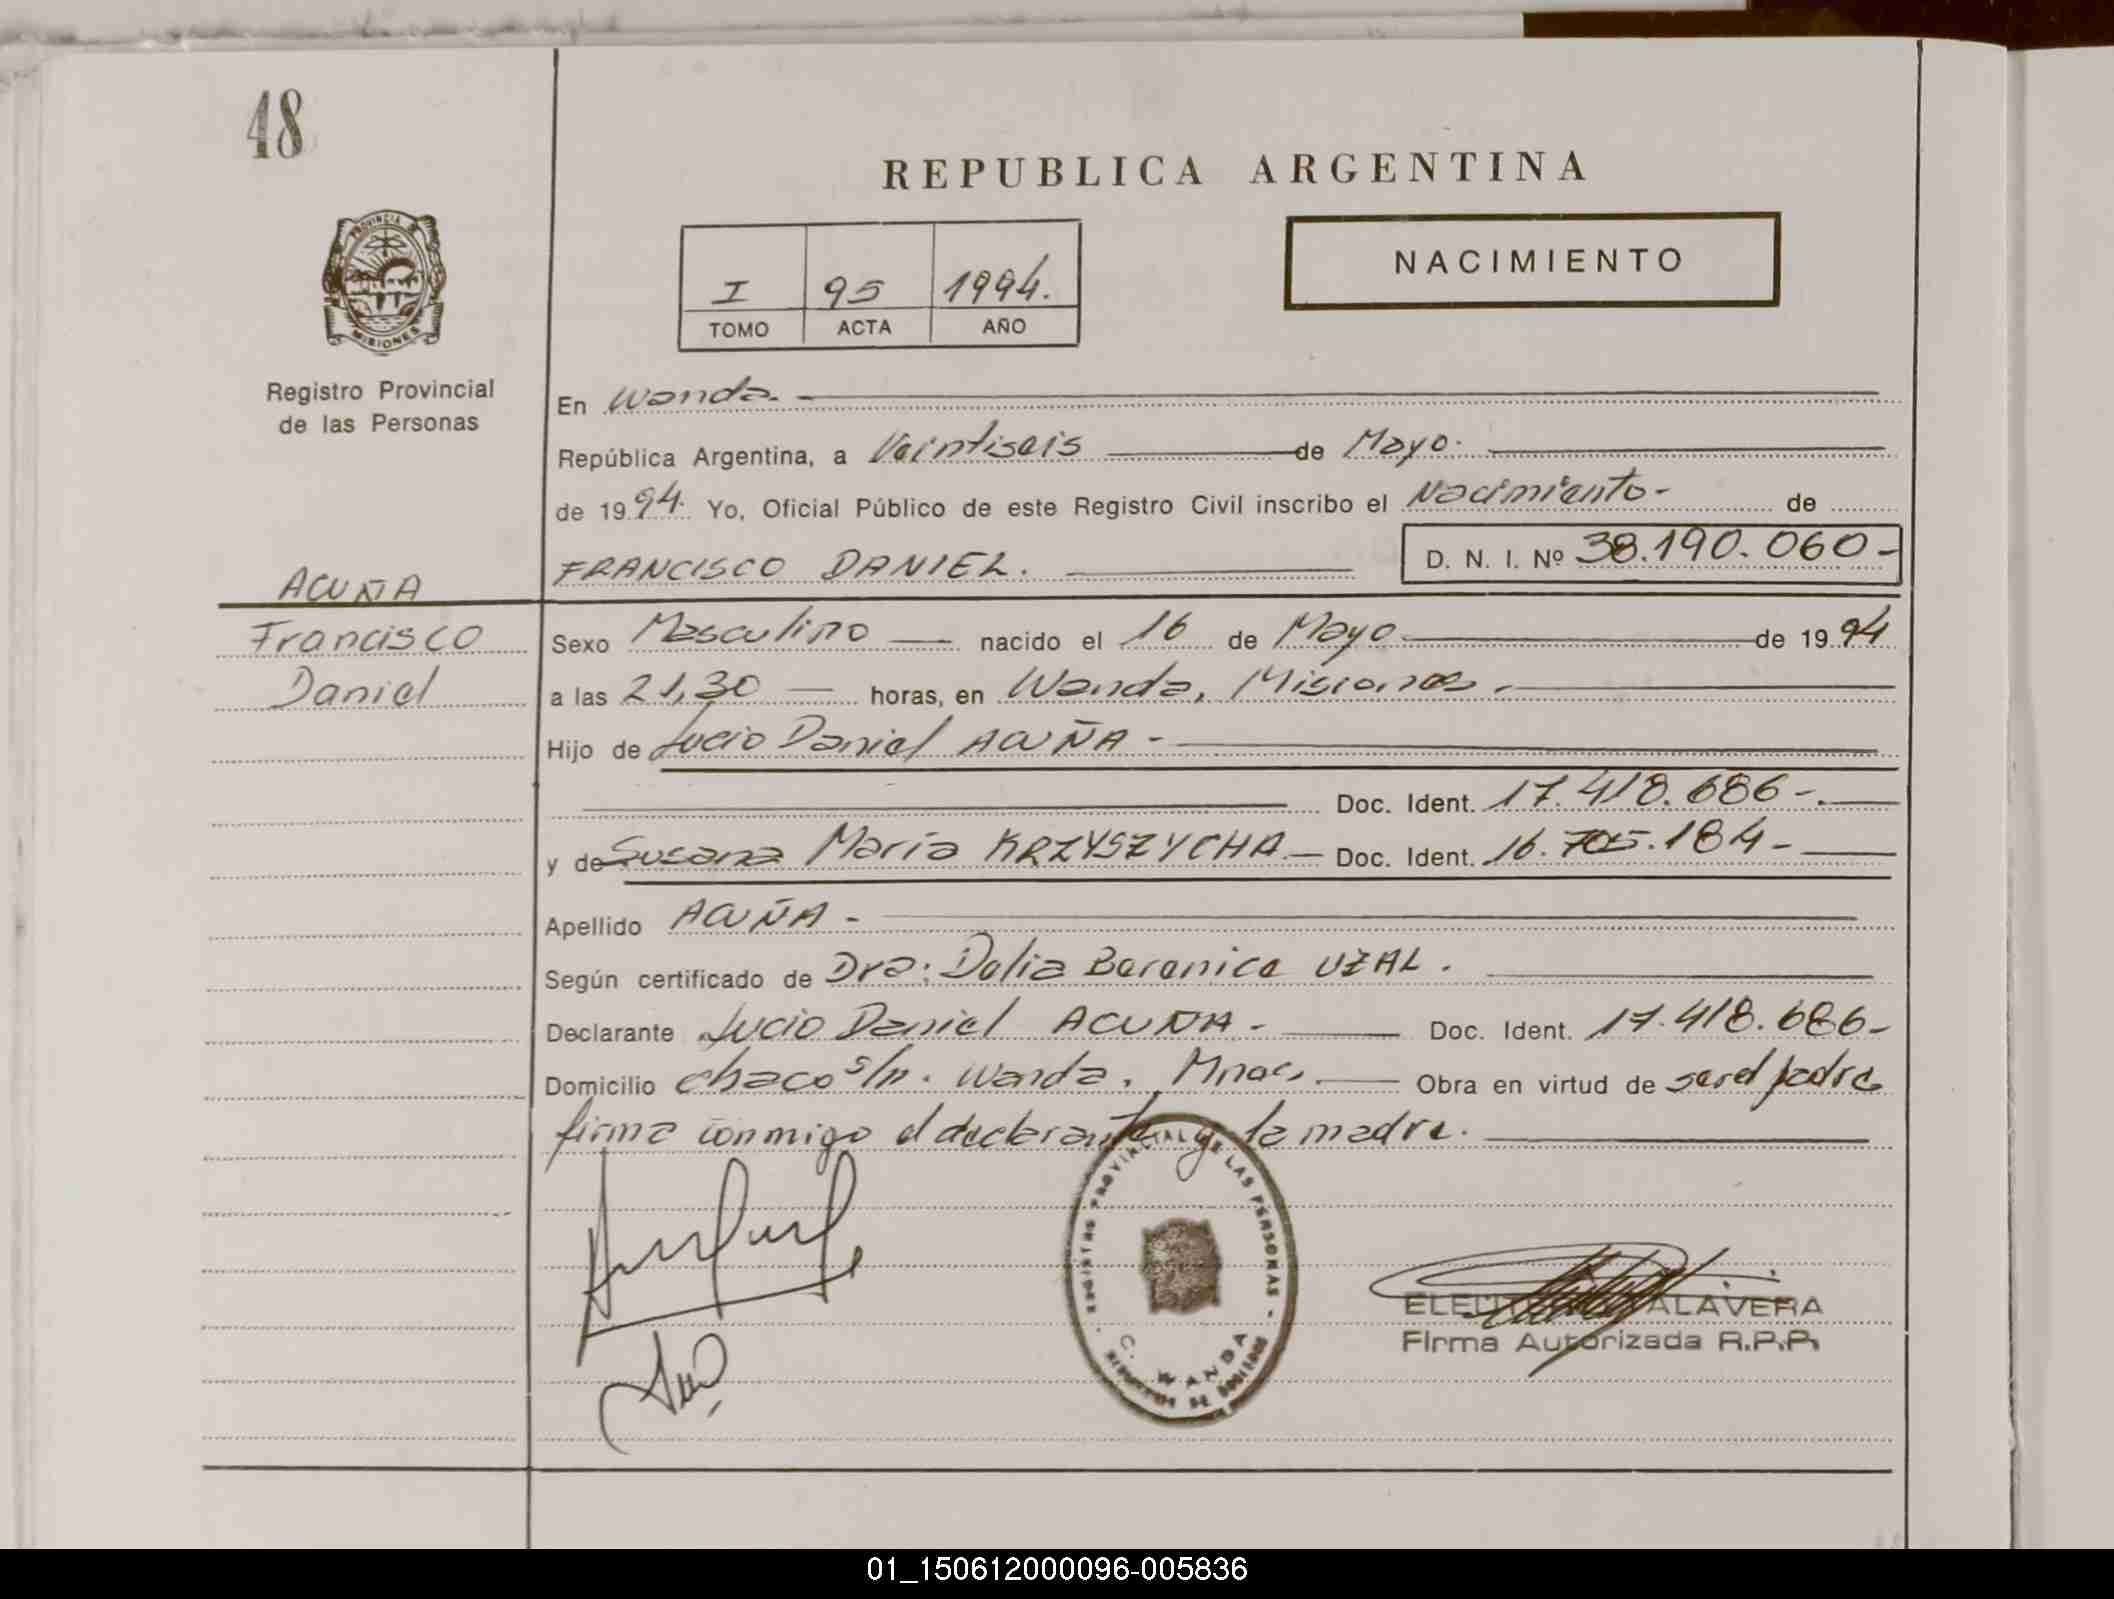 48
REPUBLICA ARGENTINA
PROVINCIA DE MISIONES
I 95 1994.
TOMO ACTA AÑO
NACIMIENTO
Registro Provincial
de las Personas
En Wanda.
República Argentina, a Veintiseis de Mayo.
de 1994. Yo, Oficial Público de este Registro Civil inscribo el Nacimiento- de
FRANCISCO DANIEL. D. N. I. Nº 38.190.060-
ACUÑA
Francisco
Daniel
Sexo Masculino nacido el 16 de Mayo de 1994
a las 21,30 horas, en Wanda, Misiones.
Hijo de Lucio Daniel ACUÑA-
Doc. Ident. 17.418.686-.
y de Susana María KRZYSZYCHA.- Doc. Ident. 16.705.184-
Apellido ACUÑA-
Según certificado de Dra: Delia Beranice UZAL.
Declarante Lucio Daniel ACUÑA- Doc. Ident. 17.418.686-
Domicilio Chaco s/n. Wanda, Mnes. Obra en virtud de ser el padre
firma conmigo el declarante y la madre.
REGISTRO PROVINCIAL DE LAS PERSONAS
C. WANDA
TALAVERA
Firma Autorizada R.P.P.
01_150612000096-005836